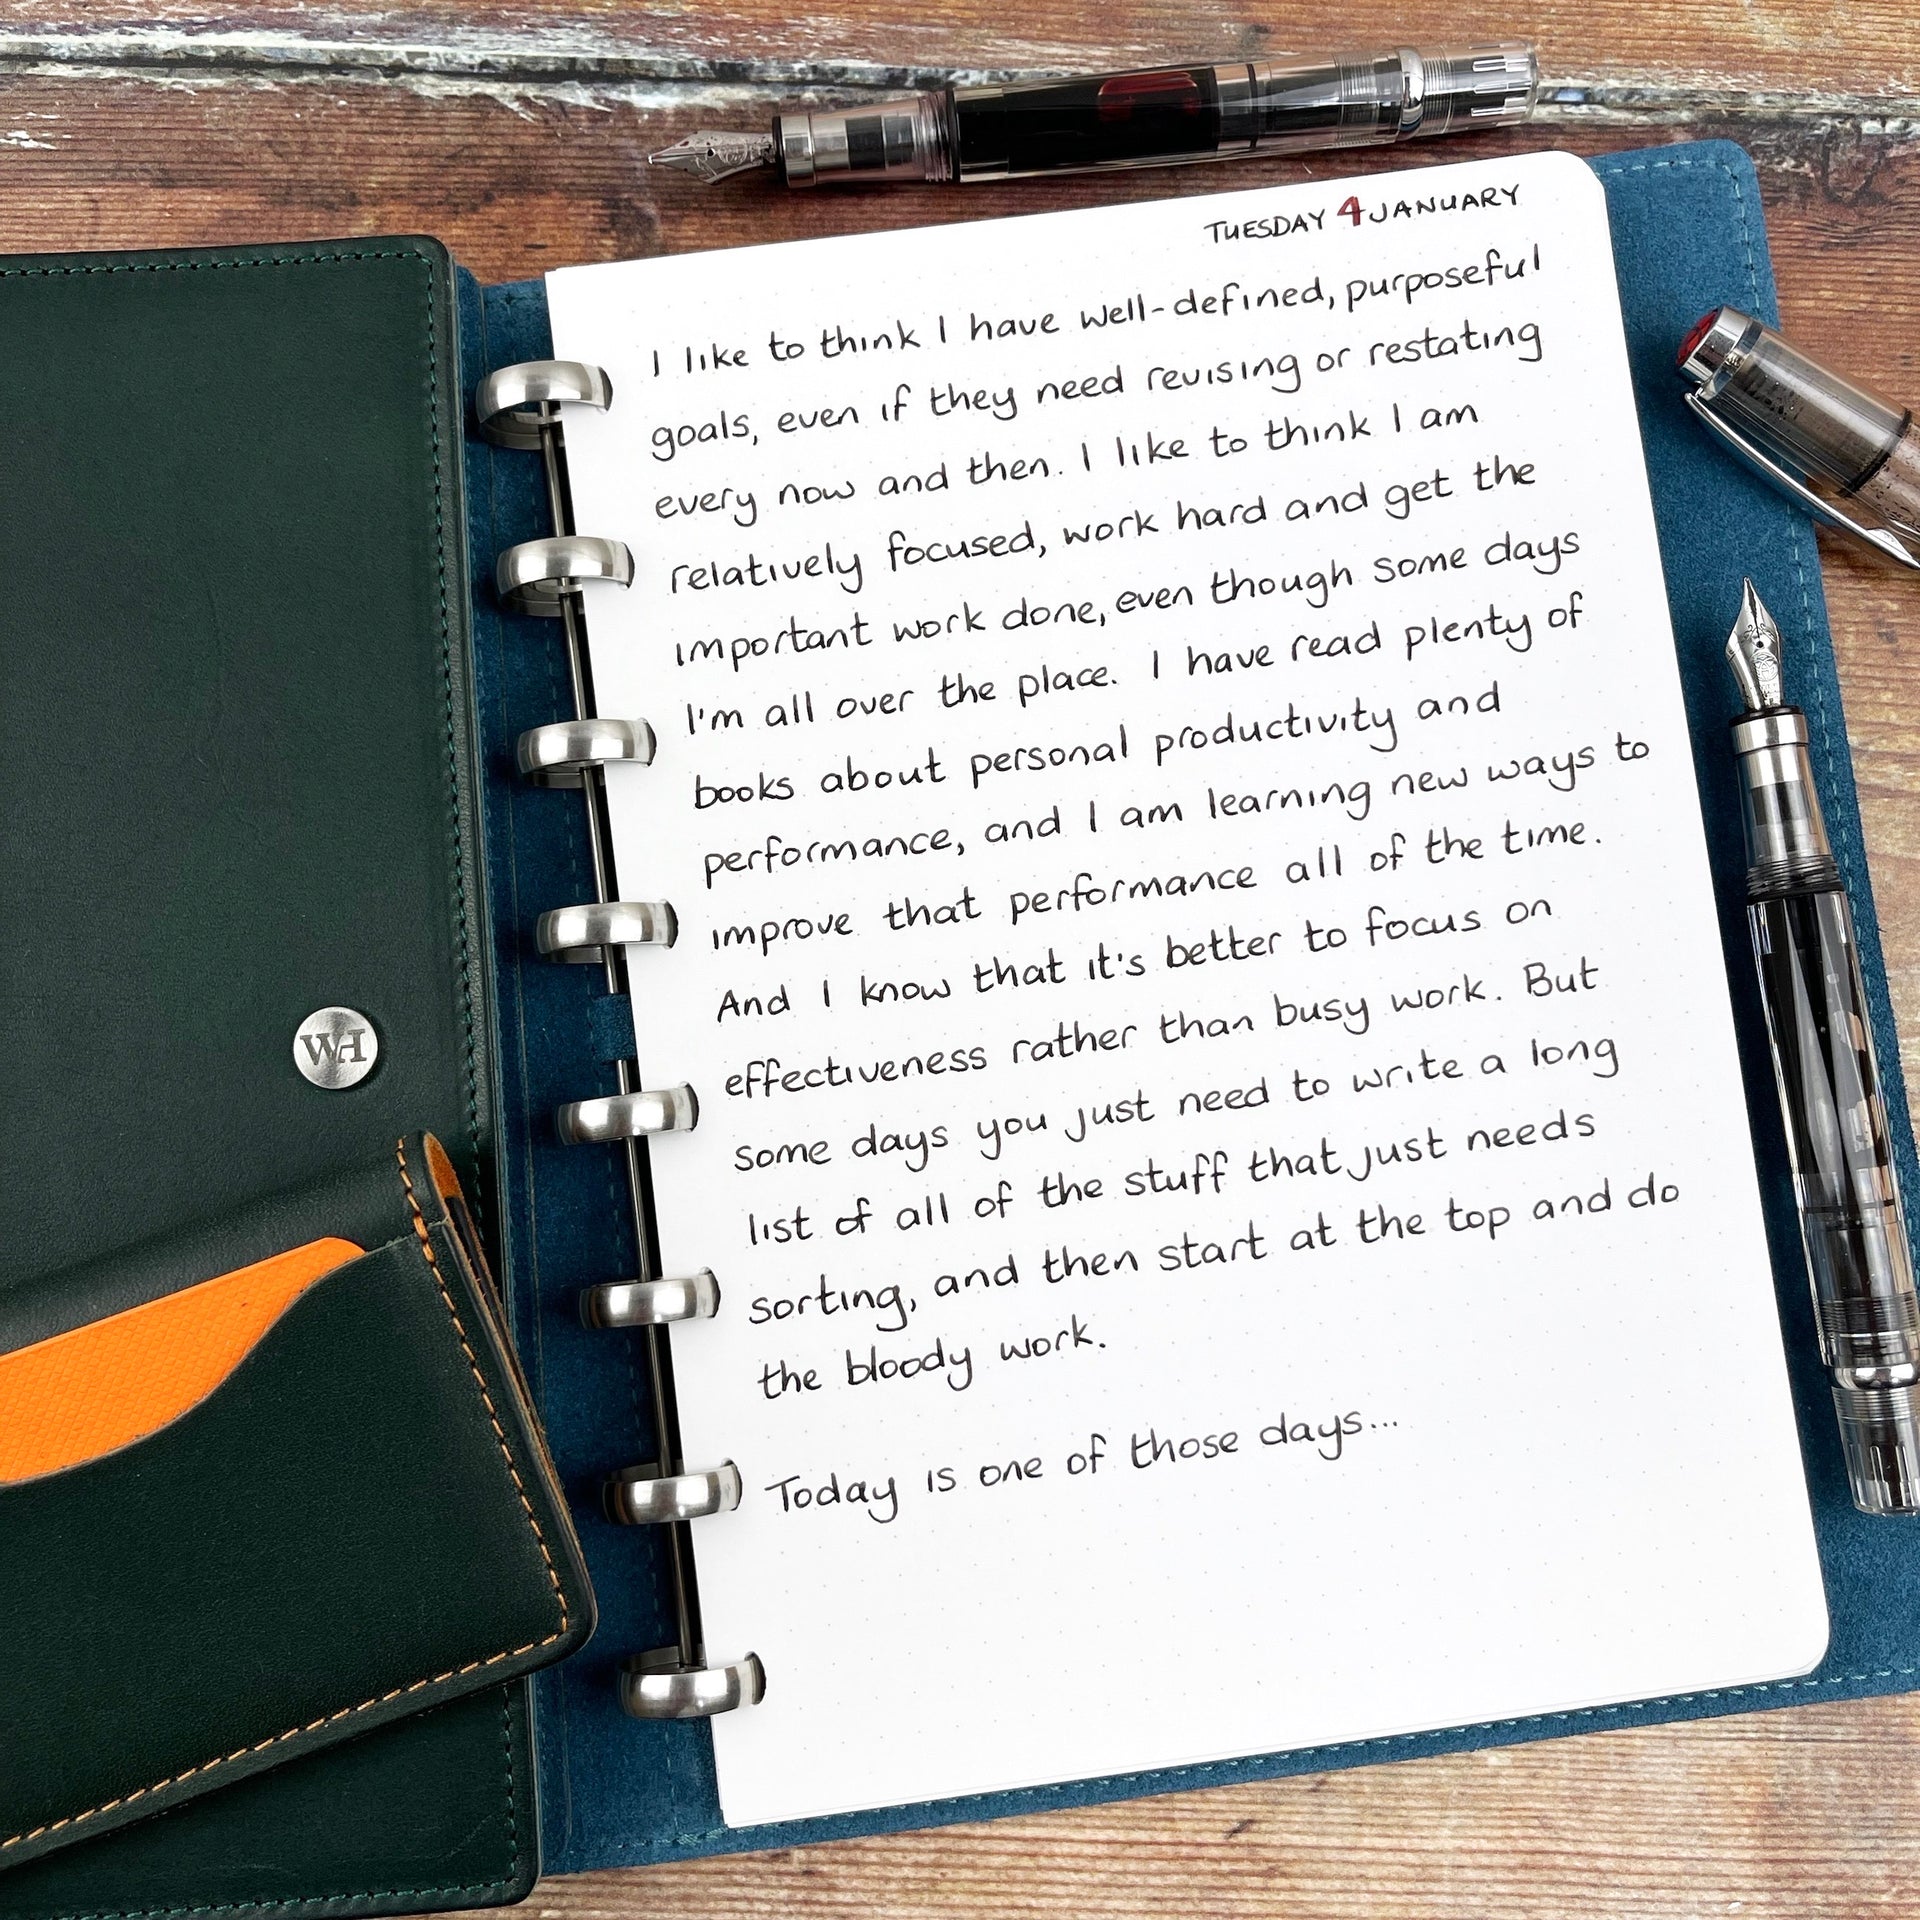 TUESDAY 4 JANUARY
I like to think I have well-defined, purposeful
goals, even if they need revising or restating
every now and then. I like to think I am
relatively focused, work hard and get the
important work done, even though some days
I'm all over the place. I have read plenty of
books about personal productivity and
performance, and I am learning new ways to
improve that performance all of the time.
And I know that it's better to focus on
effectiveness rather than busy work. But
some days you just need to write a long
list of all of the stuff that just needs
sorting, and then start at the top and do
the bloody work.
Today is one of those days...
WH